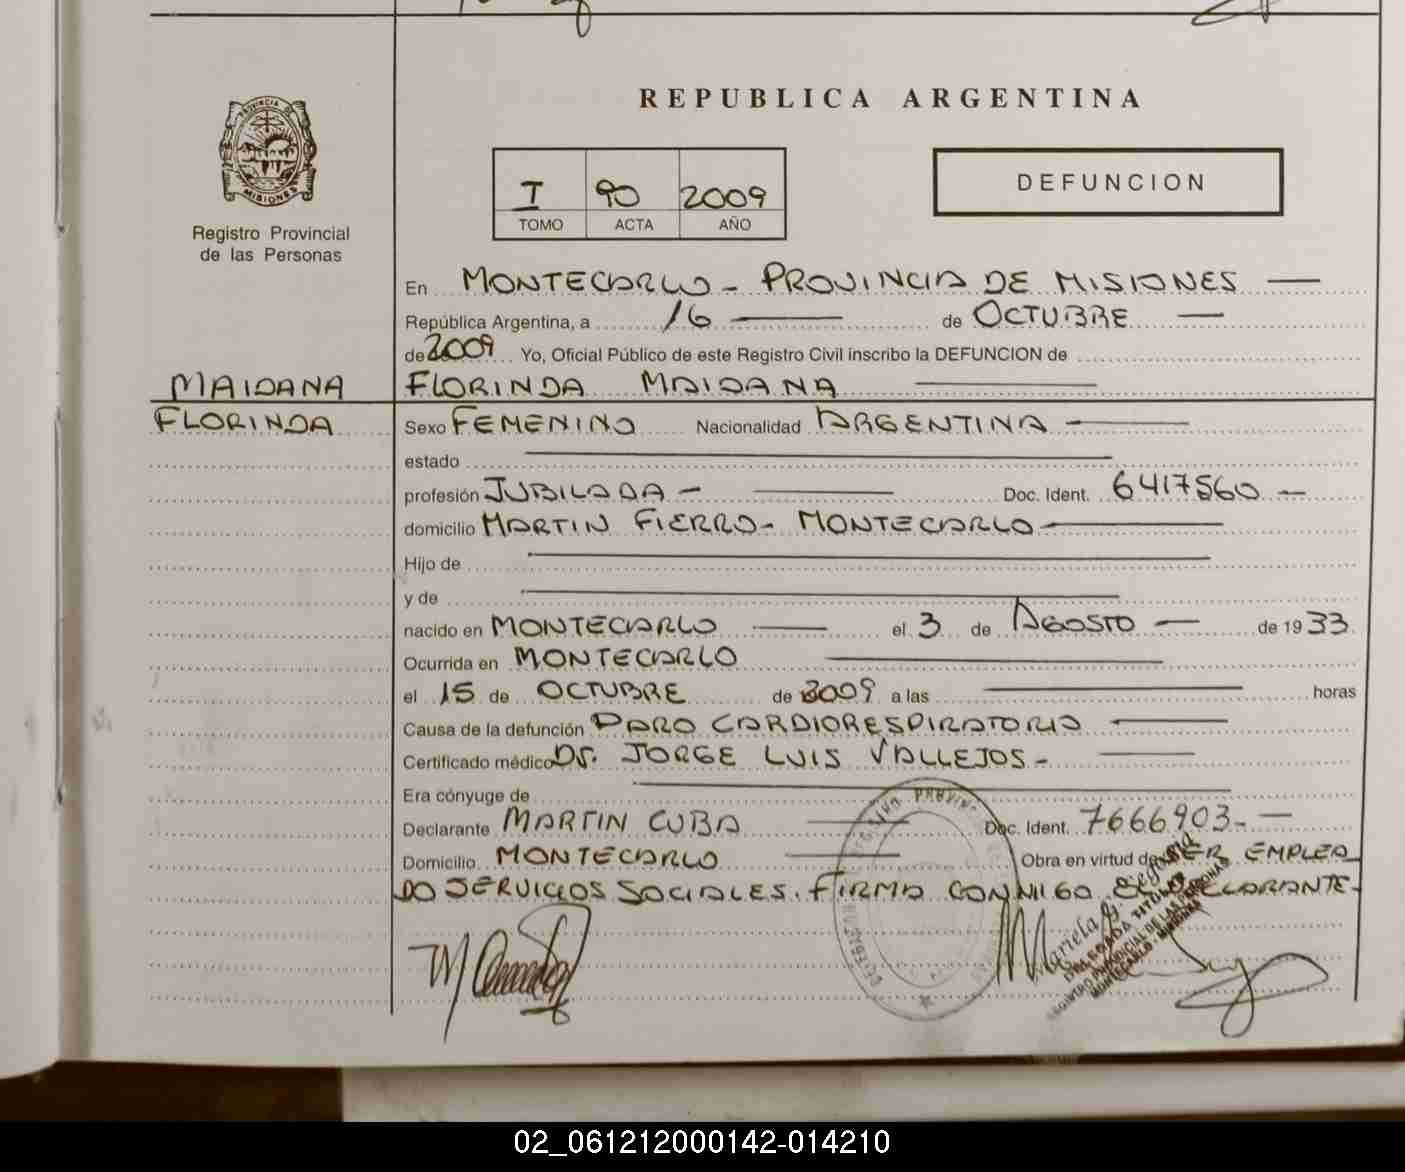 REPUBLICA ARGENTINA
PROVINCIA DE
MISIONES
Registro Provincial
de las Personas
I 90 2009
TOMO ACTA AÑO
DEFUNCION
En MONTECARLO - PROVINCIA DE MISIONES —
República Argentina, a 16 — de OCTUBRE —
de 2009 Yo, Oficial Público de este Registro Civil inscribo la DEFUNCION de
MAIDANA FLORINDA MAIDANA —
FLORINDA Sexo FEMENINO Nacionalidad ARGENTINA —
estado —
profesión JUBILADA - — Doc. Ident. 6417560 —
domicilio MARTIN FIERRO - MONTECARLO —
Hijo de —
y de —
nacido en MONTECARLO — el 3 de AGOSTO — de 1933
Ocurrida en MONTECARLO —
el 15 de OCTUBRE de 2009 a las — horas
Causa de la defunción PARO CARDIORESPIRATORIO —
Certificado médico Dr. JORGE LUIS VALLEJOS - —
Era cónyuge de —
Declarante MARTIN CUBA — Doc. Ident. 7666903 - —
Domicilio MONTECARLO — Obra en virtud de SER EMPLEA
DO SERVICIOS SOCIALES. FIRMA CONMIGO EL DECLARANTE -
Mariela G.
DELEGADA TITULAR
REGISTRO PROVINCIAL DE LAS PERSONAS
MONTECARLO - MISIONES
02_061212000142-014210